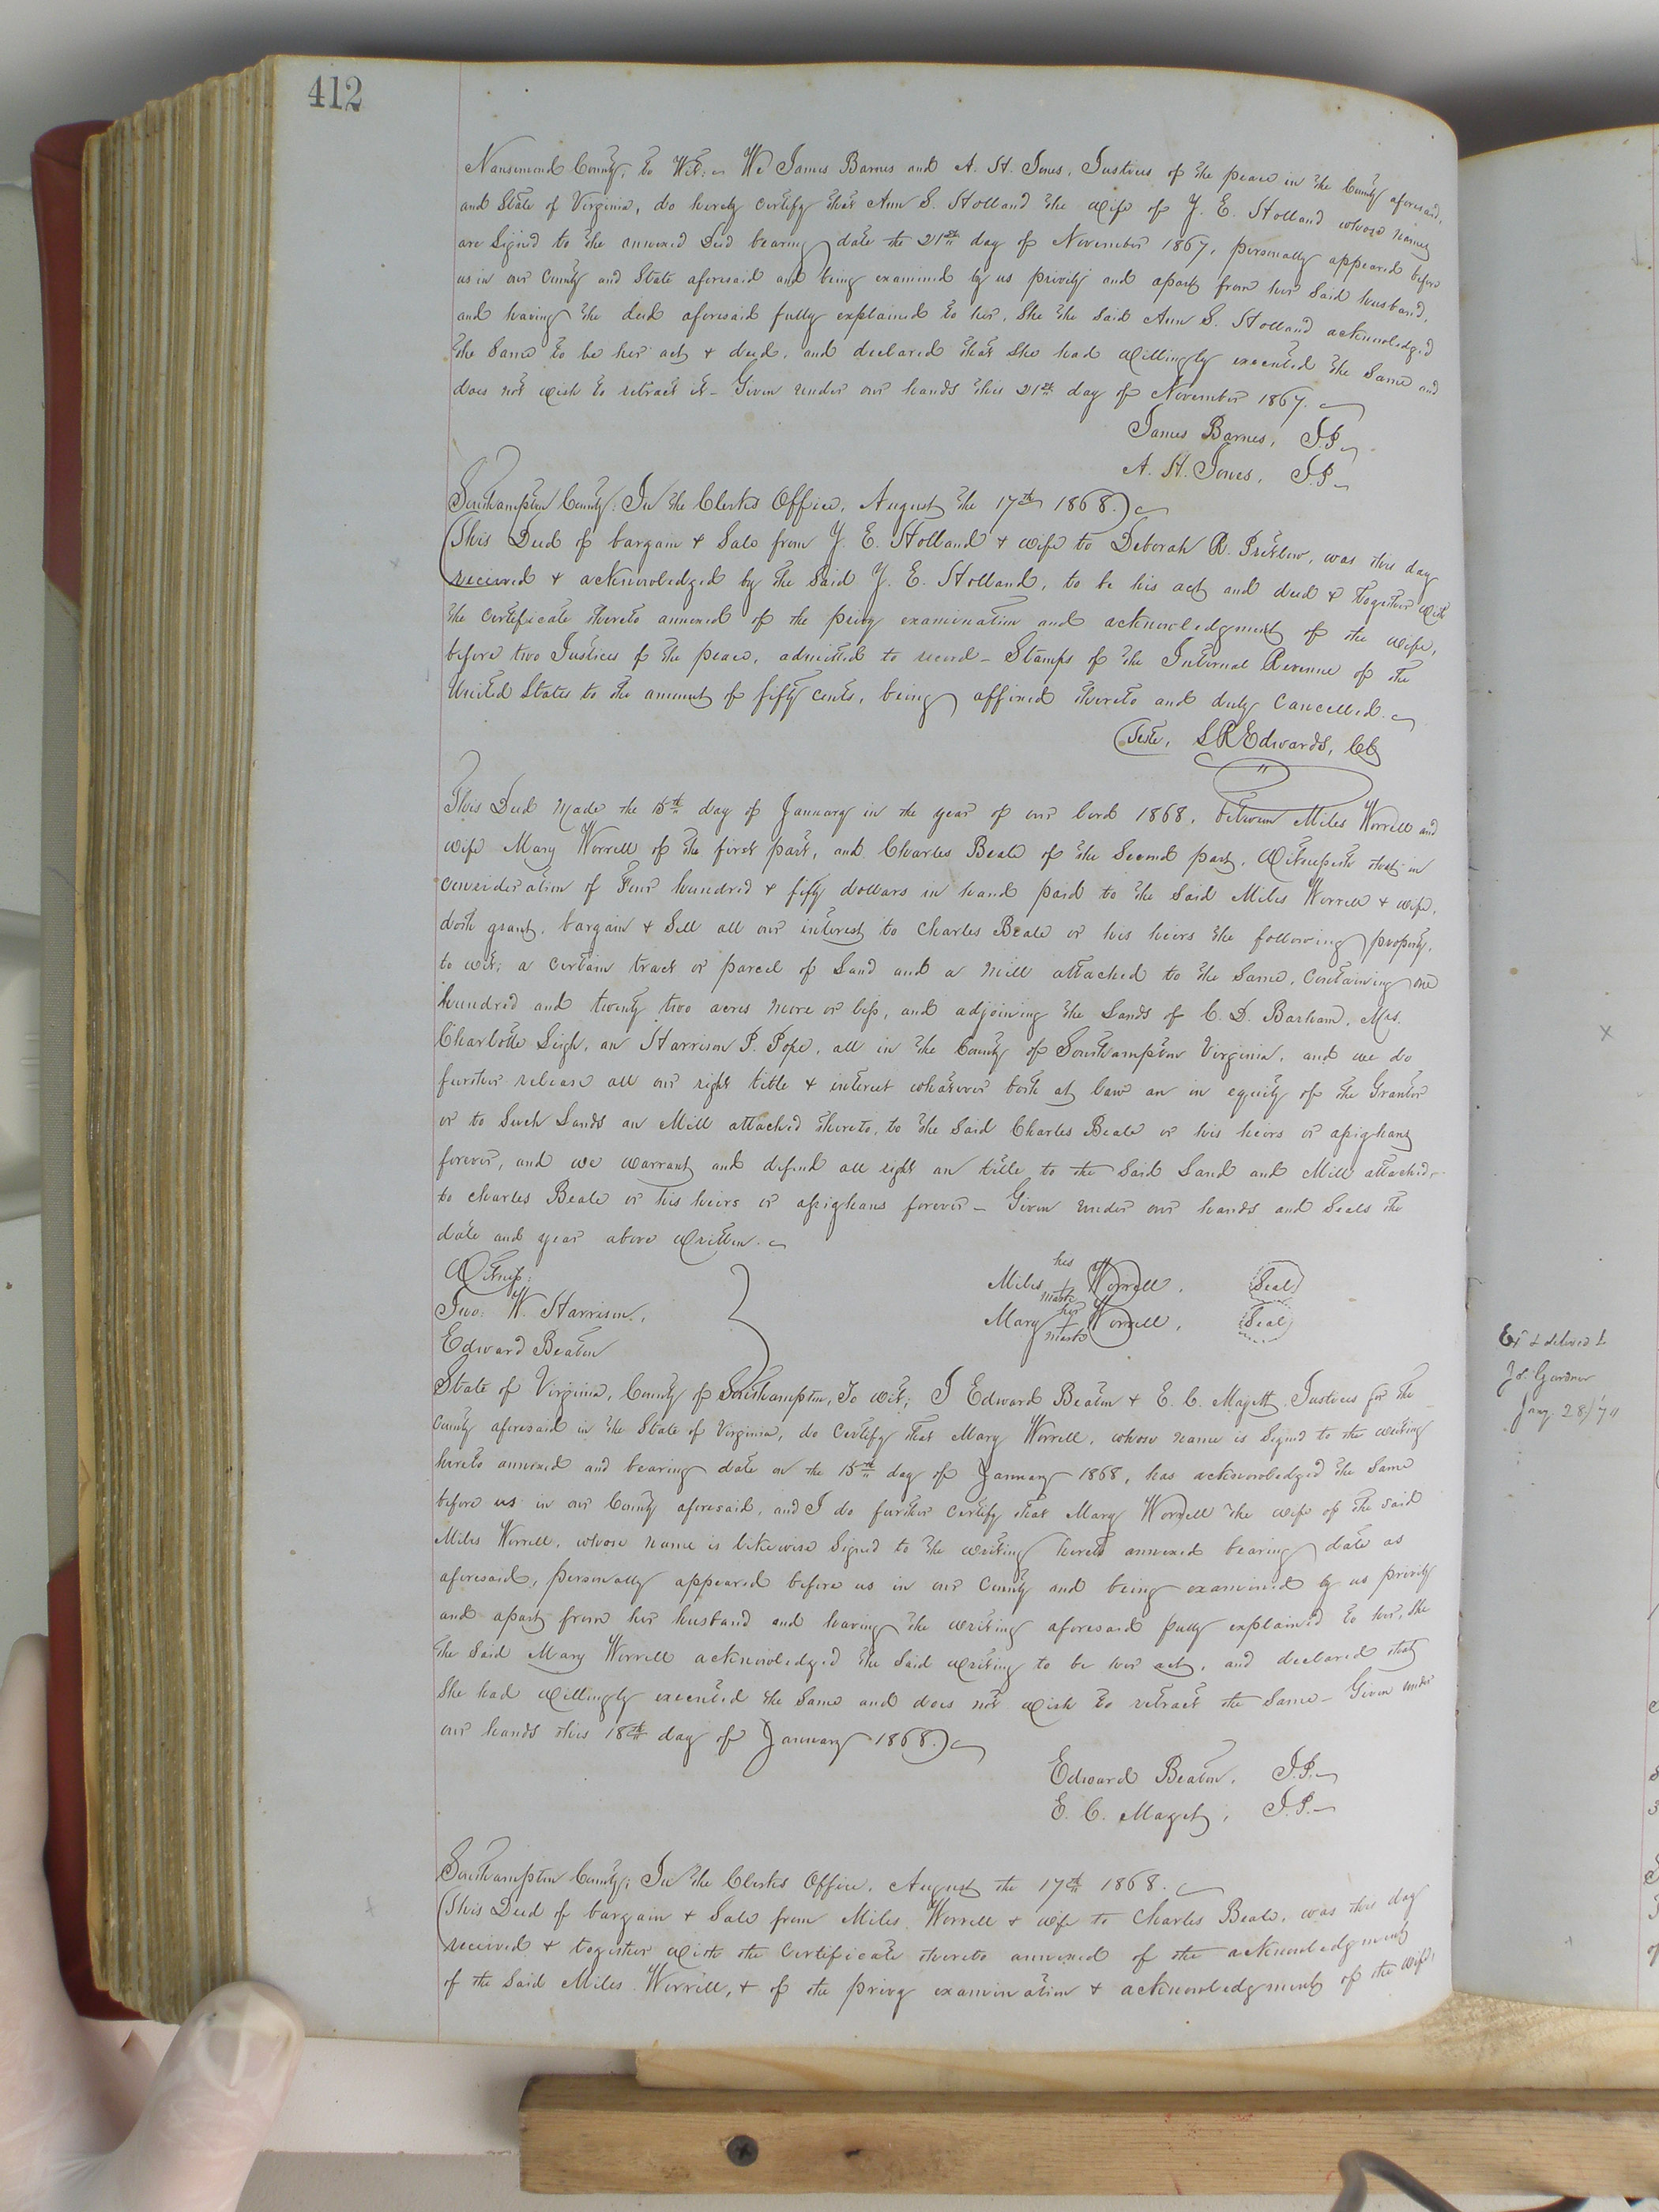 412
Nansemond County, to Wit: We James Barnes and A. H. Jones, Justices of the peace in the County aforesaid,
and State of Virginia, do hereby certify that Ann S. Holland the wife of Y. E. Holland whose names
are signed to the annexed Deed bearing date the 21st day of November 1867, personally appeared before
us in our County and State aforesaid and being examined by us privily and apart from her said husband,
and having the deed aforesaid fully explained to her, She the said Ann S. Holland acknowledged
the same to be her act & deed, and declared that she had willingly executed the same and
does not wish to retract it - Given under our hands this 21st day of November 1867.
James Barnes, J.P.
A. H. Jones, J.P.
Southampton County: In the Clerks Office, August the 17th 1868.
This Deed of bargain & Sale from Y. E. Holland & wife to Deborah R. Pretlow, was this day
received & acknowledged by the said Y. E. Holland, to be his act and deed & together with
the certificate thereto annexed of the privy examination and acknowledgment of the wife,
before two Justices of the peace, admitted to record - Stamps of the Internal Revenue of the
United States to the amount of fifty cents, being affixed thereto and duly Cancelled.
Teste, L R Edwards, CC
This Deed made the 15th day of January in the year of our Lord 1868, between Miles Worrell and
wife Mary Worrell of the first part, and Charles Beale of the Second part, Witnesseth that in
consideration of Four hundred & fifty dollars in hand paid to the said Miles Worrell & wife,
doth grant, bargain & Sell all our interest to Charles Beale or his heirs the following property,
to wit; a certain tract or parcel of Land and a Mill attached to the same, containing one
hundred and twenty two acres more or less, and adjoining the Lands of C. D. Barham, Mrs.
Charlotte Leigh, an Harrison P. Pope, all in the County of Southampton Virginia, and we do
further release all our right title & interest whatever both at law an in equity of the Grantor
or to Such Lands an Mill attached thereto, to the said Charles Beale or his heirs or assighans
forever, and we warrant and defend all right an title to the said Land and Mill attached,
to Charles Beale or his heirs or assighans forever - Given under our hands and Seals the
date and year above written.
Witness:
Jno. W. Harrison,
Edward Beaton
his
Miles + Worrell, Seal
mark
her
Mary + Worrell, Seal
mark
State of Virginia, County of Southampton, To wit; I Edward Beaton & E. C. Magett Justices for the
County aforesaid in the State of Virginia, do Certify that Mary Worrell, whose name is Signed to the writing
hereto annexed and bearing date on the 15th day of January 1868, has acknowledged the same
before us in our County aforesaid, and I do further Certify that Mary Worrell the wife of the said
Miles Worrell, whose name is likewise Signed to the writing hereto annexed bearing date as
aforesaid, personally appeared before us in our County and being examined by us privily
and apart from her husband and having the writing aforesaid fully explained to her, She
the said Mary Worrell acknowledged the said writing to be her act, and declared that
She had willingly executed the same and does not wish to retract the same - Given under
our hands this 18th day of January 1868.
Edward Beaton, J.P.
E. C. Maget, J.P.
Southampton County; In the Clerks Office, August the 17th 1868.
This Deed of bargain & Sale from Miles Worrell & wife to Charles Beale, was this day
received & together with the Certificate thereto annexed of the acknowledgment
of the said Miles Worrell, & of the privy examination & acknowledgment of the wife,
Ex & delivered to
Gardner
Jany. 28/